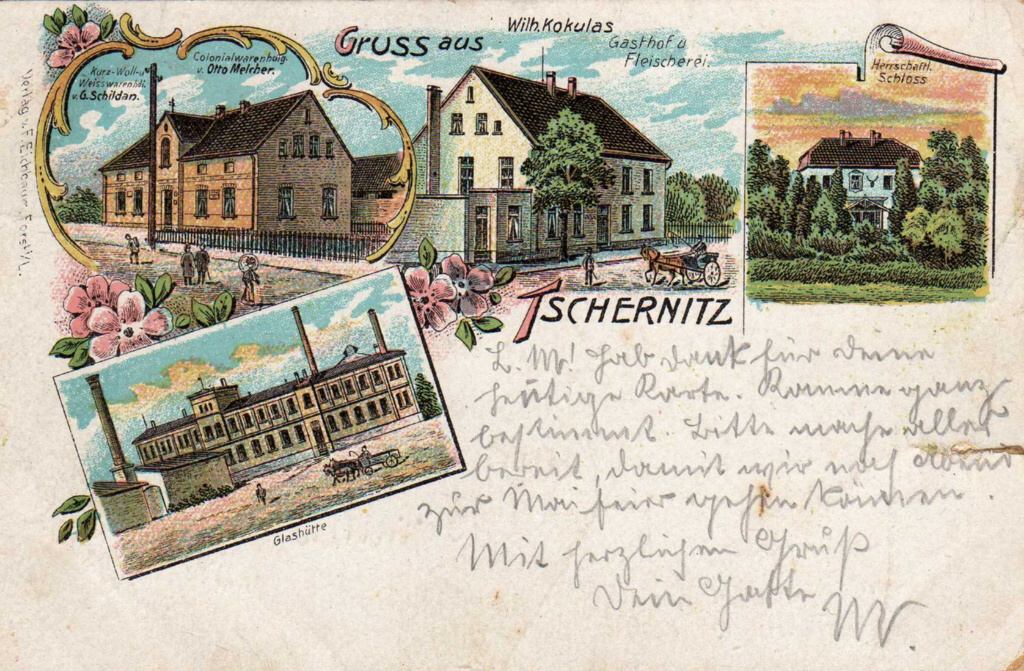 Kurz-Woll- u.
Weisswarenhdl.
v. G. Schildan.
Colonialwarenhdlg.
v. Otto Melcher.
Gruss aus
Wilh. Kokulas
Gasthof u.
Fleischerei.
Herrschaftl.
Schloss
Tschernitz
Glashütte
Verlag v. F. Eichbaum, Forst i/L.
L. M! Hab dank für deine
heutige Karte. Komme ganz
bestimmt. Bitte mache alles
bereit, damit wir noch Abend
zur Maifeier gehen können.
Mit herzlichen Gruß
Dein